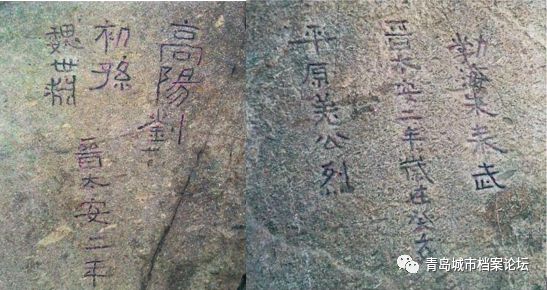 高陽劉
初孫
魏世渊
晉太安二年
勃海朱未武
晉太安二年歲在癸亥
平原羌公烈
青岛城市档案论坛